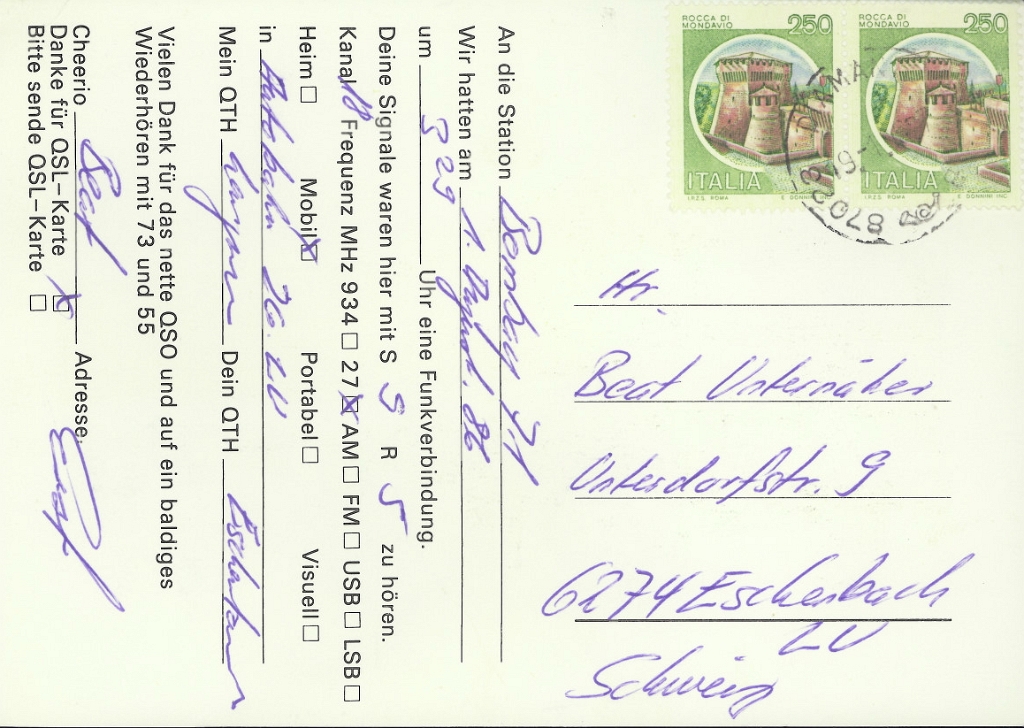 ROCCA DI
MONDAVIO 250
ITALIA
I.P.Z.S. ROMA E. DONNINI INC.
ROCCA DI
MONDAVIO 250
ITALIA
I.P.Z.S. ROMA E. DONNINI INC.
87023
Hr.
Beat Unternäher
Unterdorfstr. 9
6274 Eschenbach
LU
Schweiz
An die Station
Wir hatten am 1. 86
um Uhr eine Funkverbindung.
Deine Signale waren hier mit S 5 R 5 zu hören.
Kanal 18 Frequenz MHz 934 ☐ 27 ☒ AM ☐ FM ☐ USB ☐ LSB ☐
Heim ☐ Mobil ☒ Portabel ☐ Visuell ☐
in Autobahn
Mein QTH Dein QTH
Vielen Dank für das nette QSO und auf ein baldiges
Wiederhören mit 73 und 55
Cheerio Beat Adresse:
Danke für QSL–Karte ☒
Bitte sende QSL–Karte ☐